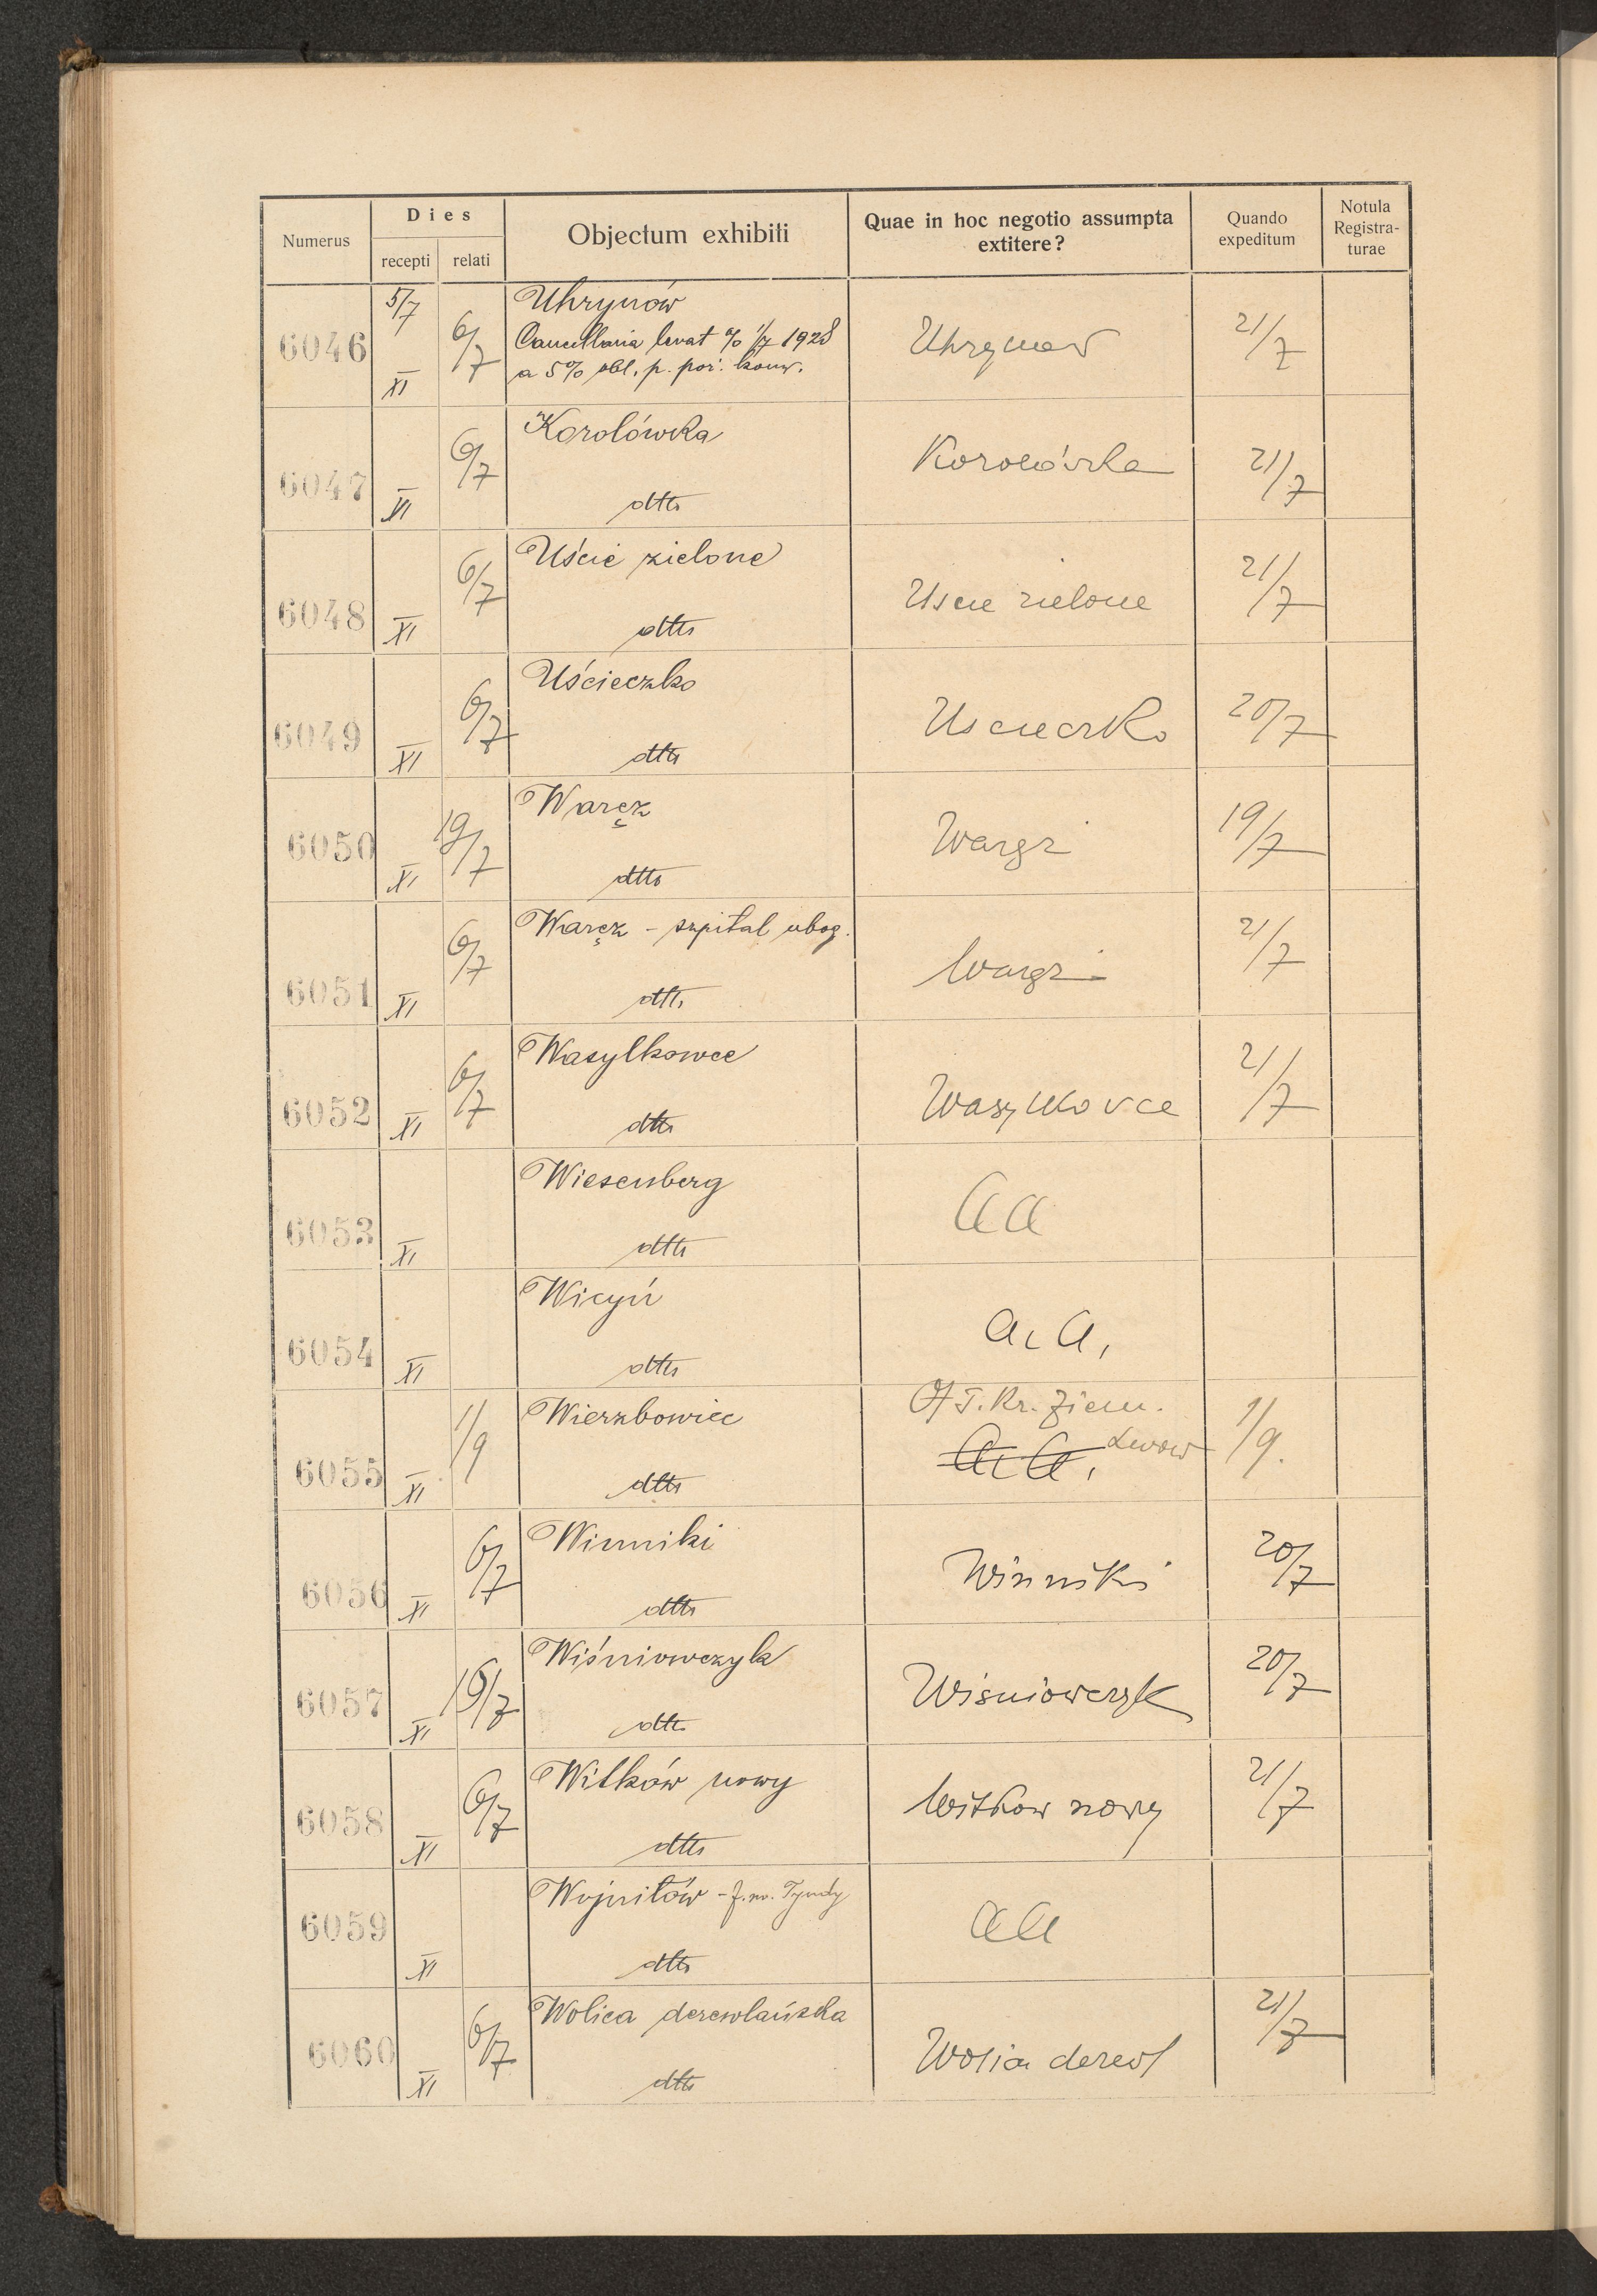 Numerus
Dies
recepti relati
Objectum exhibiti
Quae in hoc negotio assumpta
extitere?
Quando
expeditum
Notula
Registra-
turae
6046 5/7 XI 6/7 Uhrynów
Cancellaria levat % 1/7 1928
a 5% obl. p. poż. konw.
Uhrynow 21/7
6047 XI 6/7 Korolówka
dtto
Korolówka 21/7
6048 XI 6/7 Uście zielone
dtto
Uscie zielone 21/7
6049 XI 6/7 Uścieczko
dtto
Uscieczko 20/7
6050 XI 19/7 Waręż
dtto
Waręz 19/7
6051 XI 6/7 Waręż - szpital ubog.
dtto
Waręz 21/7
6052 XI 6/7 Wasylkowce
dtto
Wasylkowce 21/7
6053 XI Wiesenberg
dtto
aa
6054 XI Wicyń
dtto
a, a,
6055 XI 1/9 Wierzbowiec
dtto
T. Kr. Ziem.
Lwow
a, a, 1/9.
6056 XI 6/7 Winniki
dtto
Winniki 20/7
6057 XI 19/7 Wiśniowczyk
dtto
Wisniowczyk 20/7
6058 XI 6/7 Witków nowy
dtto
Witkow nowy 21/7
6059 XI Wojniłów - f. m. Tyndy
dtto
aa
6060 XI 6/7 Wolica derewlańska
dtto
Wolica derewl 21/7